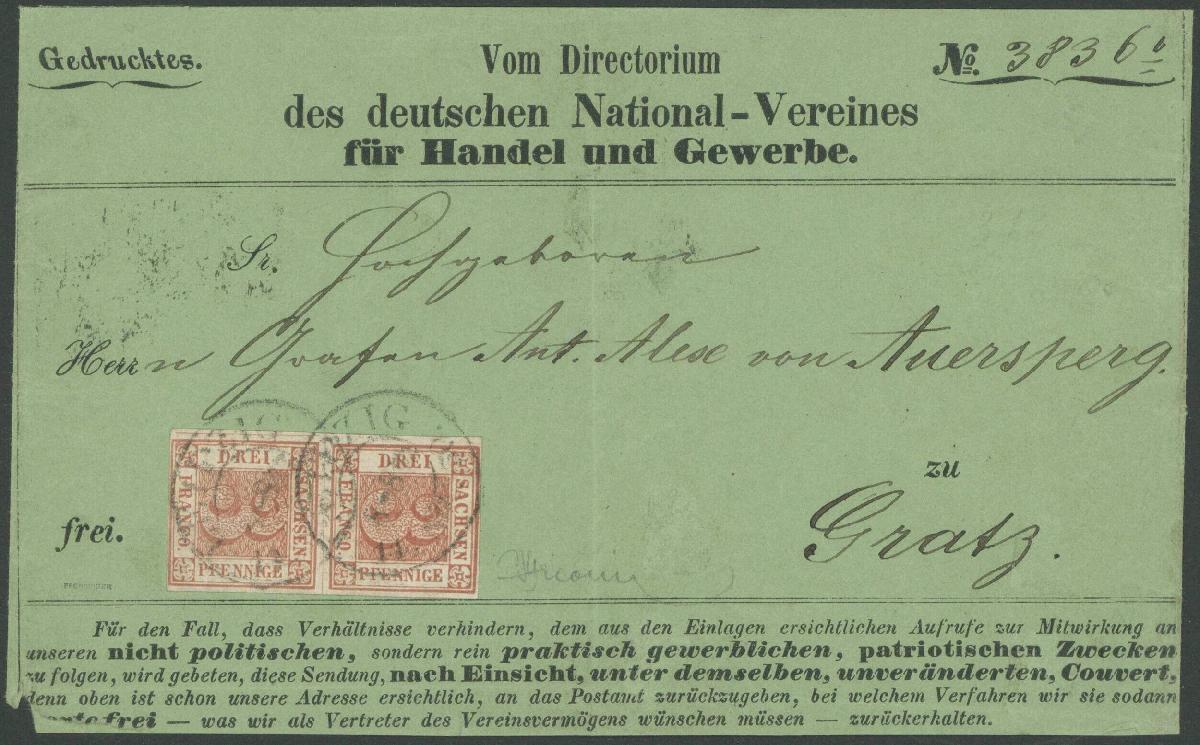 Gedrucktes.
Vom Directorium
№. 3836
des deutschen National-Vereines
für Handel und Gewerbe.
Sr. Hochgeboren
Herrn Grafen Ant. Alexe von Auersperg.
zu
Gratz.
frei.
LEIPZIG
LEIPZIG
DREI
FRANCO.
SACHSEN
3
PFENNIGE
DREI
FRANCO.
SACHSEN
3
PFENNIGE
Für den Fall, dass Verhältnisse verhindern, dem aus den Einlagen ersichtlichen Aufrufe zur Mitwirkung an
unseren nicht politischen, sondern rein praktisch gewerblichen, patriotischen Zwecken
zu folgen, wird gebeten, diese Sendung, nach Einsicht, unter demselben, unveränderten, Couvert,
denn oben ist schon unsere Adresse ersichtlich, an das Postamt zurückzugeben, bei welchem Verfahren wir sie sodann
portofrei — was wir als Vertreter des Vereinsvermögens wünschen müssen — zurückerhalten.